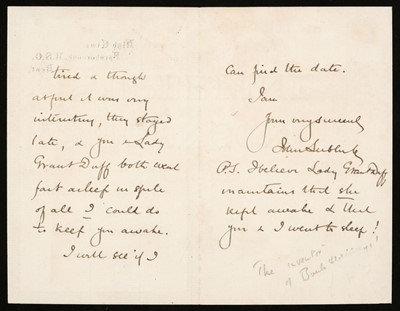 High Elms
Farnborough R.S.O.
Kent
tired & though
at first it was very
interesting, they stayed
late, & you & Lady
Grant Duff both went
fast asleep in spite
of all I could do
to keep you awake.
I will see if I
can find the date.
I am
Yours very sincerely
John Lubbock
P.S. I believe Lady Grant Duff
maintains that she
kept awake & that
you & I went to sleep!
The inventor
of Bank Holidays!